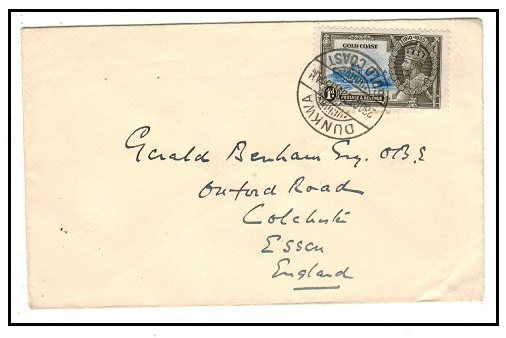 GOLD COAST
1910-1935
1D
POSTAGE & REVENUE
DUNKWA
GOLD COAST
Gerald Benham Esq. O.B.E
Oxford Road
Colchester
Essex
England